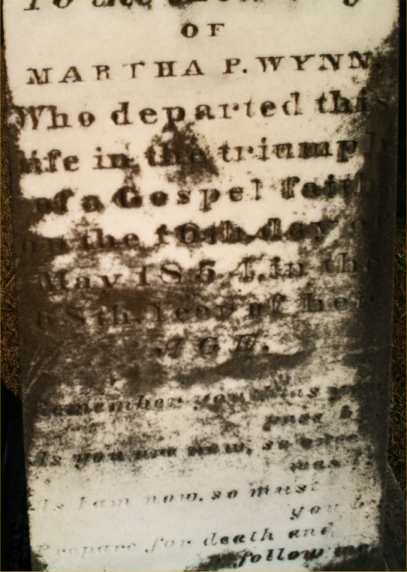 To the
OF
MARTHA P. WYNN
Who departed this
life in the triumph
of a Gospel faith
on the 10th day of
May 1854, in the
Year of her
AGE.
Remember you
pass b
As you are now, so once
was I
As I am now, so must
you be
Prepare for death and
follow me